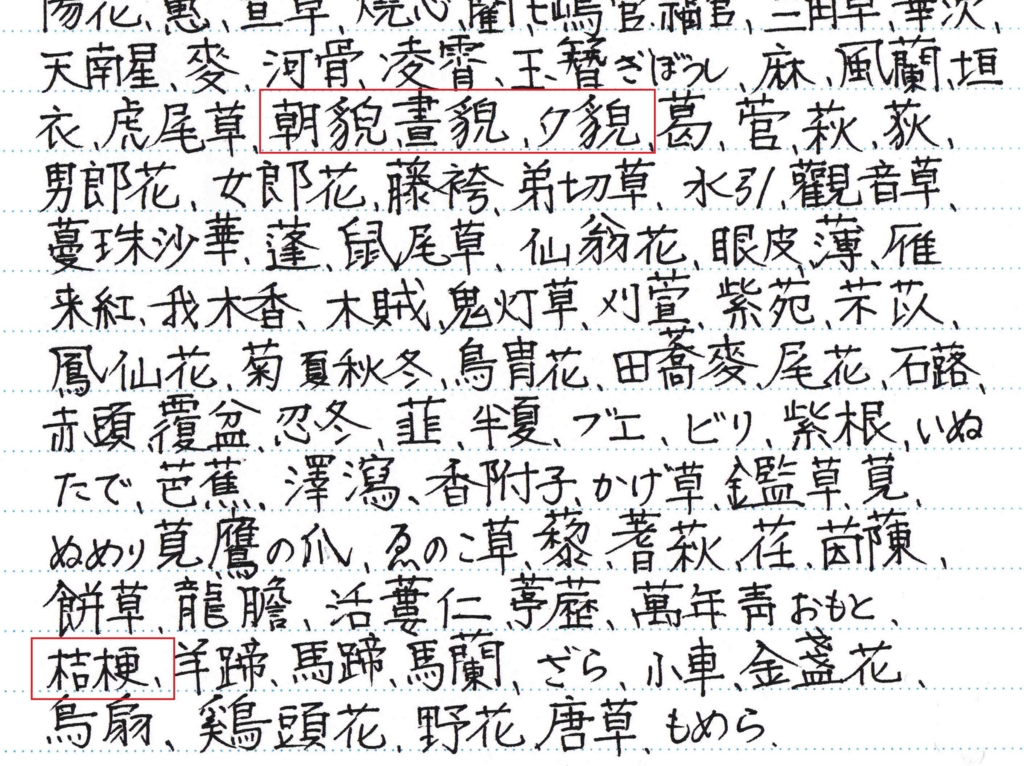 天南星、麥、河骨、凌霄、玉簪ぎぼうし、麻、風蘭、垣
衣、虎尾草、朝貌、晝貌、夕貌、葛、菅、萩、荻、
男郎花、女郎花、藤袴、弟切草、水引、觀音草、
蔓珠沙華、蓬、鼠尾草、仙翁花、眼皮、薄、雁
来紅、我木香、木賊、鬼灯草、刈萱、紫苑、芣苡、
鳳仙花、菊夏秋冬、鳥胄花、田蕎麥、尾花、石蕗、
赤頭、覆盆、忍冬、韮、半夏、ブエ、ビリ、紫根、いぬ
たで、芭蕉、澤瀉、香附子、かげ草、鑑草、莧、
ぬめり莧、鷹の爪、ゑのこ草、藜、蓍萩、荏、茵蔯、
餅草、龍膽、活蔞仁、葶藶、萬年青おもと、
桔梗、羊蹄、馬蹄、馬蘭、ざら、小車、金盞花、
烏扇、鶏頭花、野花、唐草、もめら.